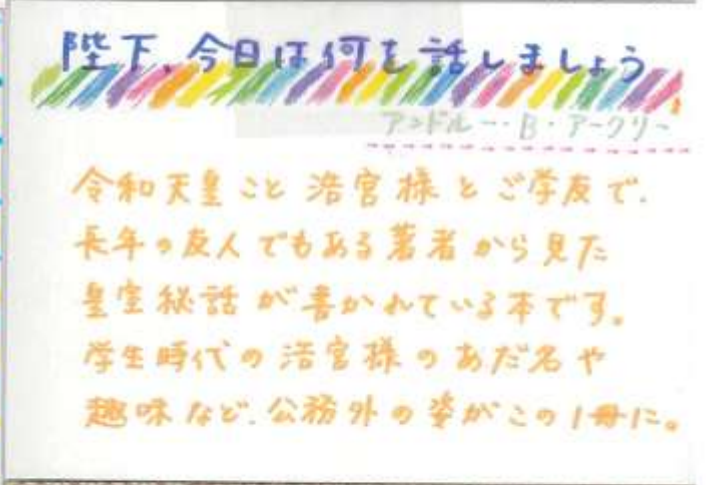 陛下、今日は何を話しましょう
アンドルー・B・アークリー
令和天皇こと浩宮様とご学友で、
長年の友人でもある著者から見た
皇室秘話が書かれている本です。
学生時代の浩宮様のあだ名や
趣味など、公務外の姿がこの1冊に。